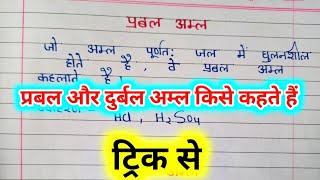 प्रबल अम्ल
जो अम्ल पूर्णत: जल में घुलनशील
होते हैं, वे प्रबल अम्ल
कहलाते हैं,
प्रबल और दुर्बल अम्ल किसे कहते हैं
Hcl, H2SO4
ट्रिक से